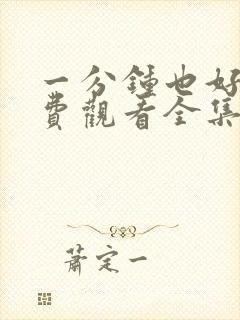 一分鍾也好
費觀看全集
蕭定一